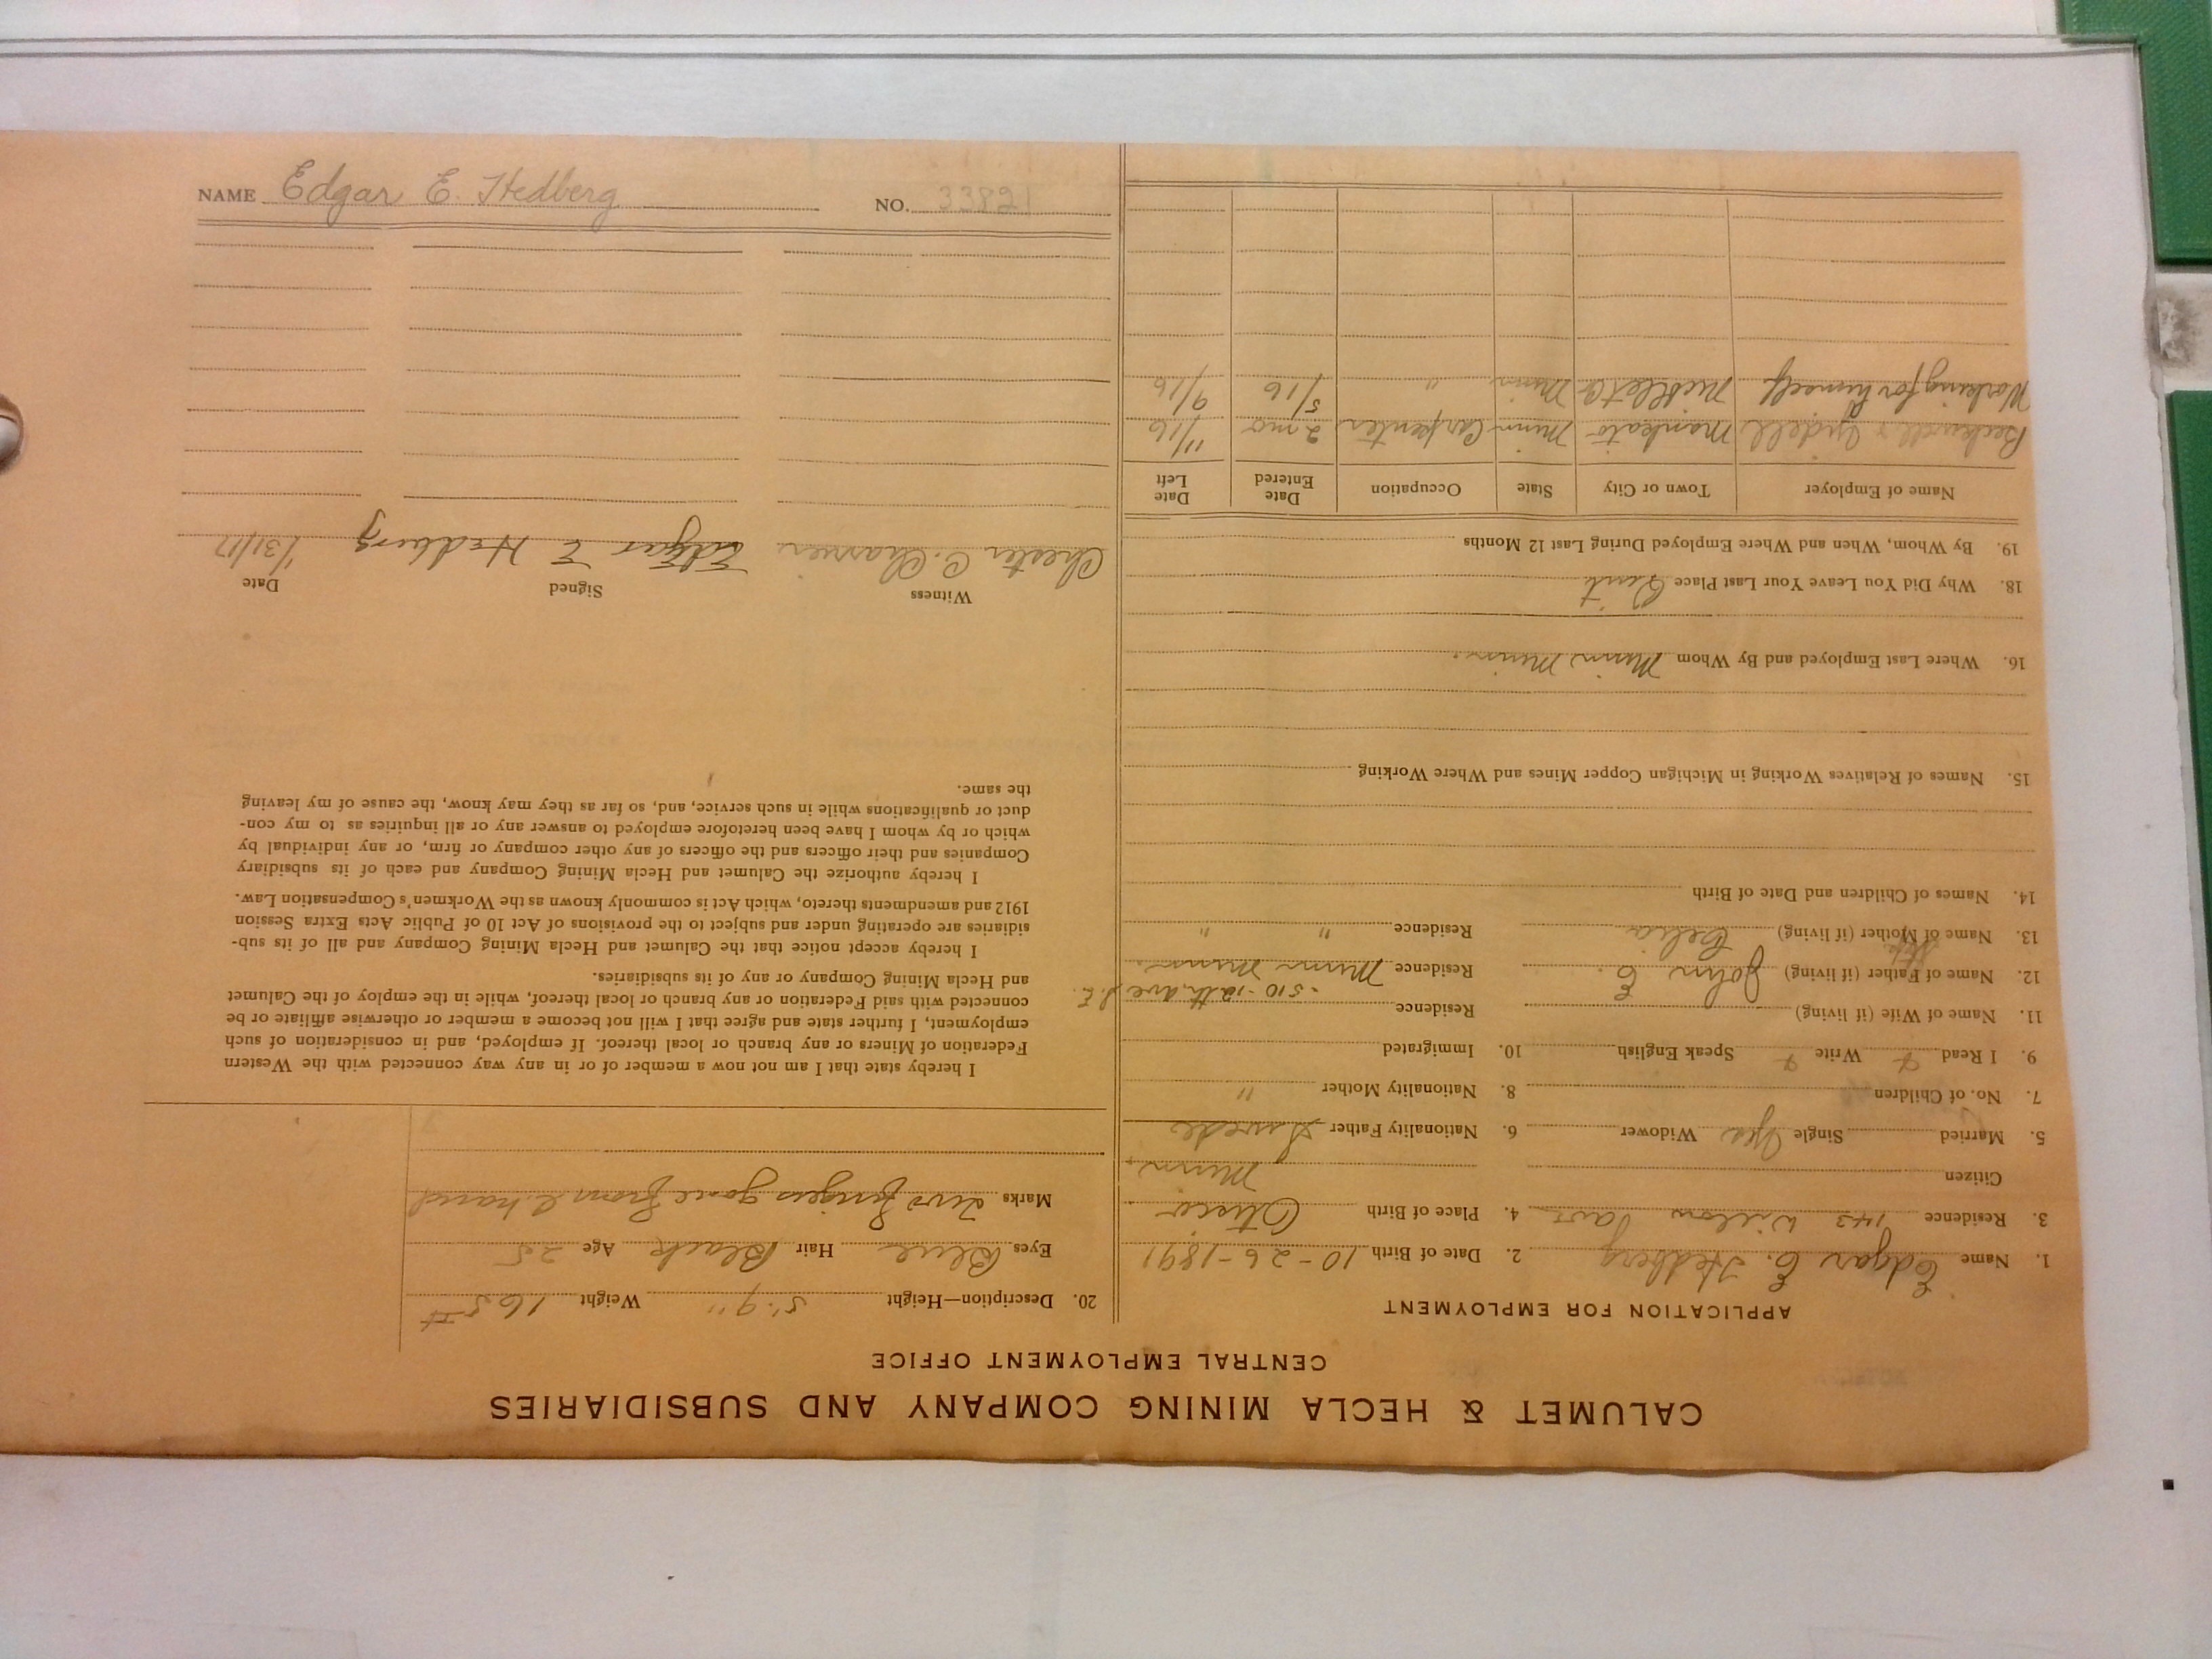 CALUMET & HECLA MINING COMPANY AND SUBSIDIARIES
CENTRAL EMPLOYMENT OFFICE
APPLICATION FOR EMPLOYMENT
1. Name Edgar E. Hedberg 2. Date of Birth 10-26-1891
3. Residence 143 Willow Ave 4. Place of Birth Otisco
Citizen Minn
5. Married Single Yes Widower 6. Nationality Father Swede
7. No. of Children 8. Nationality Mother "
9. I Read Write Speak English 10. Immigrated
11. Name of Wife (if living) Residence
510-12th ave S.E.
12. Name of Father (if living) John E. Residence Minn Minn.
Step
13. Name of Mother (if living) Celia Residence " "
14. Names of Children and Date of Birth
15. Names of Relatives Working in Michigan Copper Mines and Where Working
16. Where Last Employed and By Whom Minn Minn.
18. Why Did You Leave Your Last Place Quit
19. By Whom, When and Where Employed During Last 12 Months
Name of Employer Town or City State Occupation Date Entered Date Left
Mankato Minn Carpenter 2 mo 11/16
Working for himself Minn " 5/16 9/16
20. Description—Height 5'9" Weight 165#
Eyes Blue Hair Black Age 25
Marks Two fingers gone from L hand
I hereby state that I am not now a member of or in any way connected with the Western
Federation of Miners or any branch or local thereof. If employed, and in consideration of such
employment, I further state and agree that I will not become a member or otherwise affiliate or be
connected with said Federation or any branch or local thereof, while in the employ of the Calumet
and Hecla Mining Company or any of its subsidiaries.
I hereby accept notice that the Calumet and Hecla Mining Company and all of its sub-
sidiaries are operating under and subject to the provisions of Act 10 of Public Acts Extra Session
1912 and amendments thereto, which Act is commonly known as the Workmen's Compensation Law.
I hereby authorize the Calumet and Hecla Mining Company and each of its subsidiary
Companies and their officers and the officers of any other company or firm, or any individual by
which or by whom I have been heretofore employed to answer any or all inquiries as to my con-
duct or qualifications while in such service, and, so far as they may know, the cause of my leaving
the same.
Witness Signed Date
Chester C. Edgar E Hedberg 1/31/17
NAME Edgar E. Hedberg NO. 33821